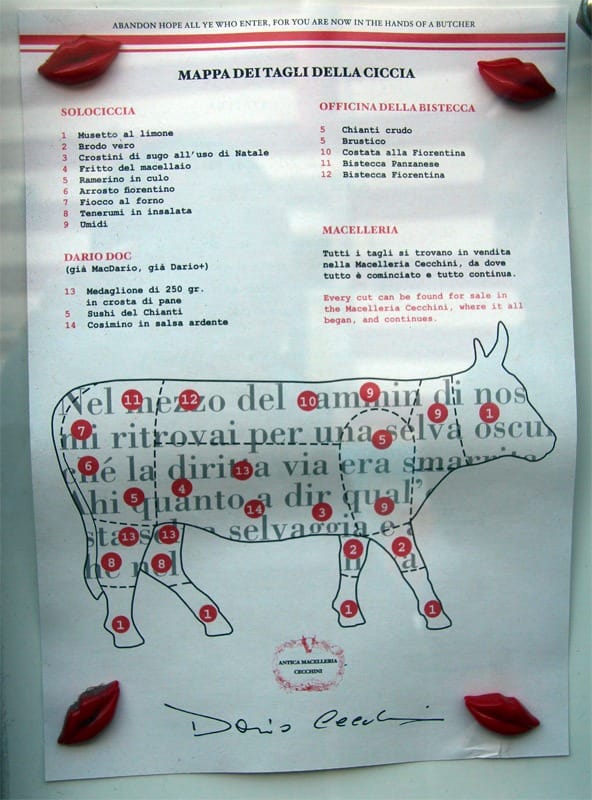 ABANDON HOPE ALL YE WHO ENTER, FOR YOU ARE NOW IN THE HANDS OF A BUTCHER
MAPPA DEI TAGLI DELLA CICCIA
SOLOCICCIA
1 Musetto al limone
2 Brodo vero
3 Crostini di sugo all'uso di Natale
4 Fritto del macellaio
5 Ramerino in culo
6 Arrosto fiorentino
7 Fiocco al forno
8 Tenerumi in insalata
9 Umidi
DARIO DOC
(già MacDario, già Dario+)
13 Medaglione di 250 gr.
in crosta di pane
5 Sushi del Chianti
14 Cosimino in salsa ardente
OFFICINA DELLA BISTECCA
5 Chianti crudo
5 Brustico
10 Costata alla Fiorentina
11 Bistecca Panzanese
12 Bistecca Fiorentina
MACELLERIA
Tutti i tagli si trovano in vendita
nella Macelleria Cecchini, da dove
tutto è cominciato e tutto continua.
Every cut can be found for sale in
the Macelleria Cecchini, where it all
began, and continues.
Nel mezzo del cammin di nos
mi ritrovai per una selva oscu
ché la diritta via era smarrita
Ahi quanto a dir qual'
sta selva selvaggia e
he nel
11 12 10 9 9 1
7 5
6 13
5 4 14 3 9
13 13
8 8 2 2
1 1 1 1
ANTICA MACELLERIA
CECCHINI
Dario Cecchini